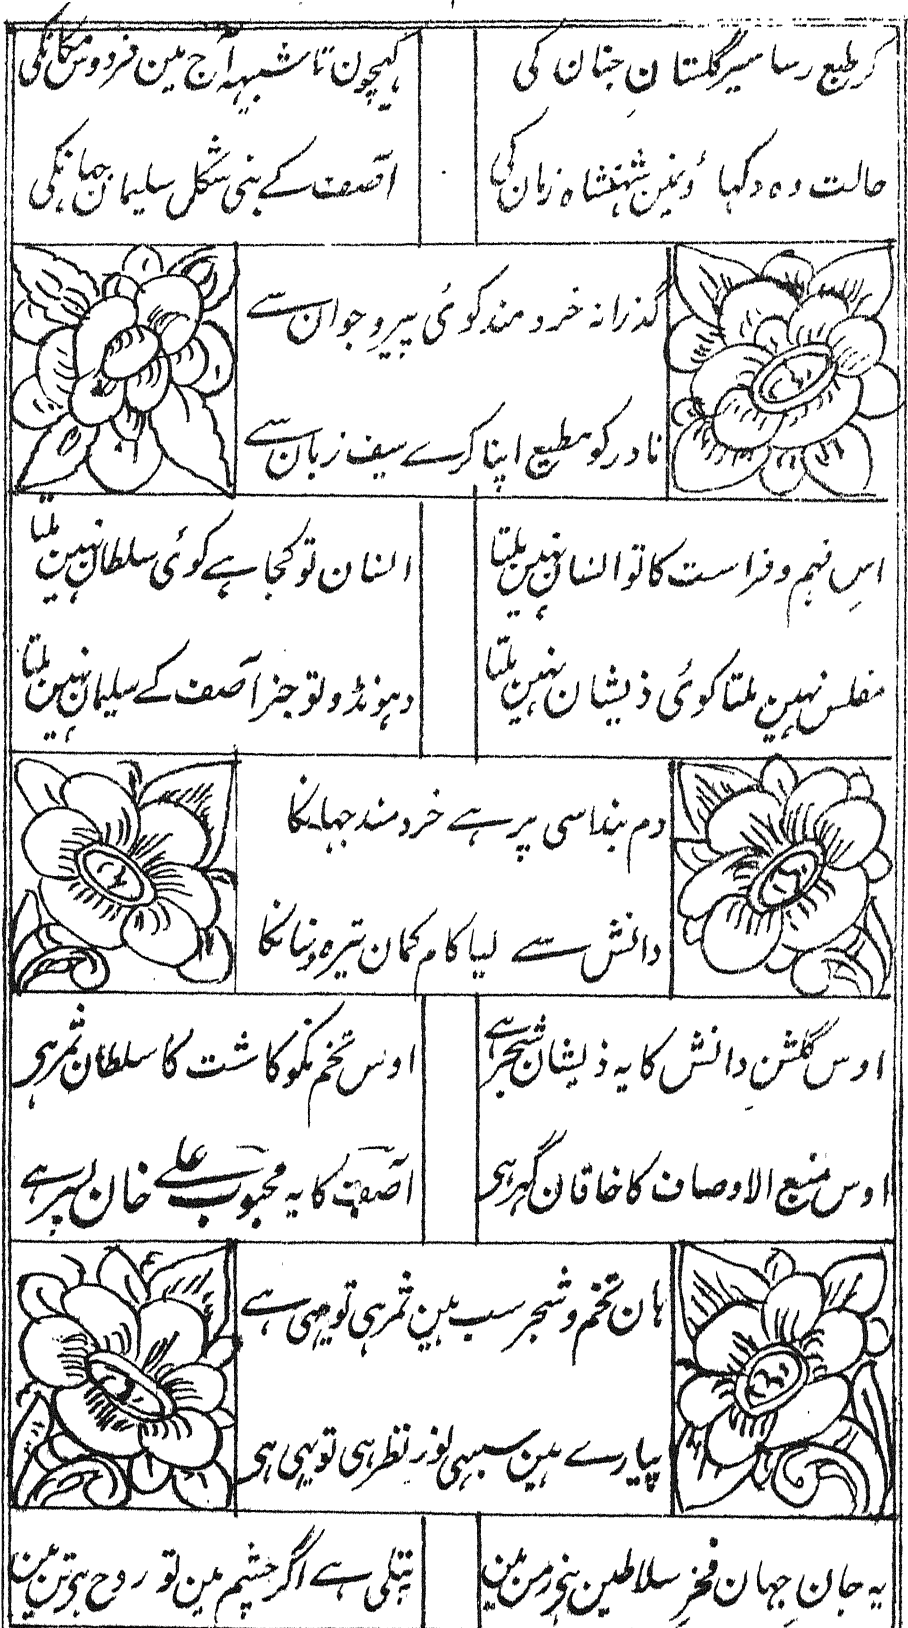 کر طبع رسا سیر گلستانِ جنان کی
کھیچون تا شبیہہ آج مین فردوس مکانکی
حالت وہ دکہاؤنمین شہنشاہ زمان کی
آصف کے بنی شکل سلیمان جہانکی
گذرانہ خرد مند کوئی پیر و جوان سے
نادر کو مطیع اپنا کرے سیف زبان سے
اس فہم و فراست کا تو انسان نہین ملتا
انسان تو کجا ہے کوئی سلطان نہین ملتا
مفلس نہین ملتا کوئی ذیشان نہین ملتا
دہونڈو تو جز آصف کے سلیمان نہین ملتا
دم بند اسی پر ہے خرد مند جہانکا
دانش سے لیا کام کمان تیر و سنانکا
اوس گلشنِ دانش کا یہ ذیشان شجر ہے
اوس تخم نکو کاشت کا سلطان ثمر ہی
اوس منبع الاوصاف کا خاقان گہر ہی
آصف کا یہ محبوب علے خان پسر ہے
ہان تخم و شجر سب ہین ثمر ہی تو یہی ہے
پیارے ہین سبہی نورِ نظر ہی تو یہی ہی
یہ جانِ جہان فخرِ سلاطین ہی زمن مین
پتلی ہے اگر چشم مین تو روح ہی تن مین